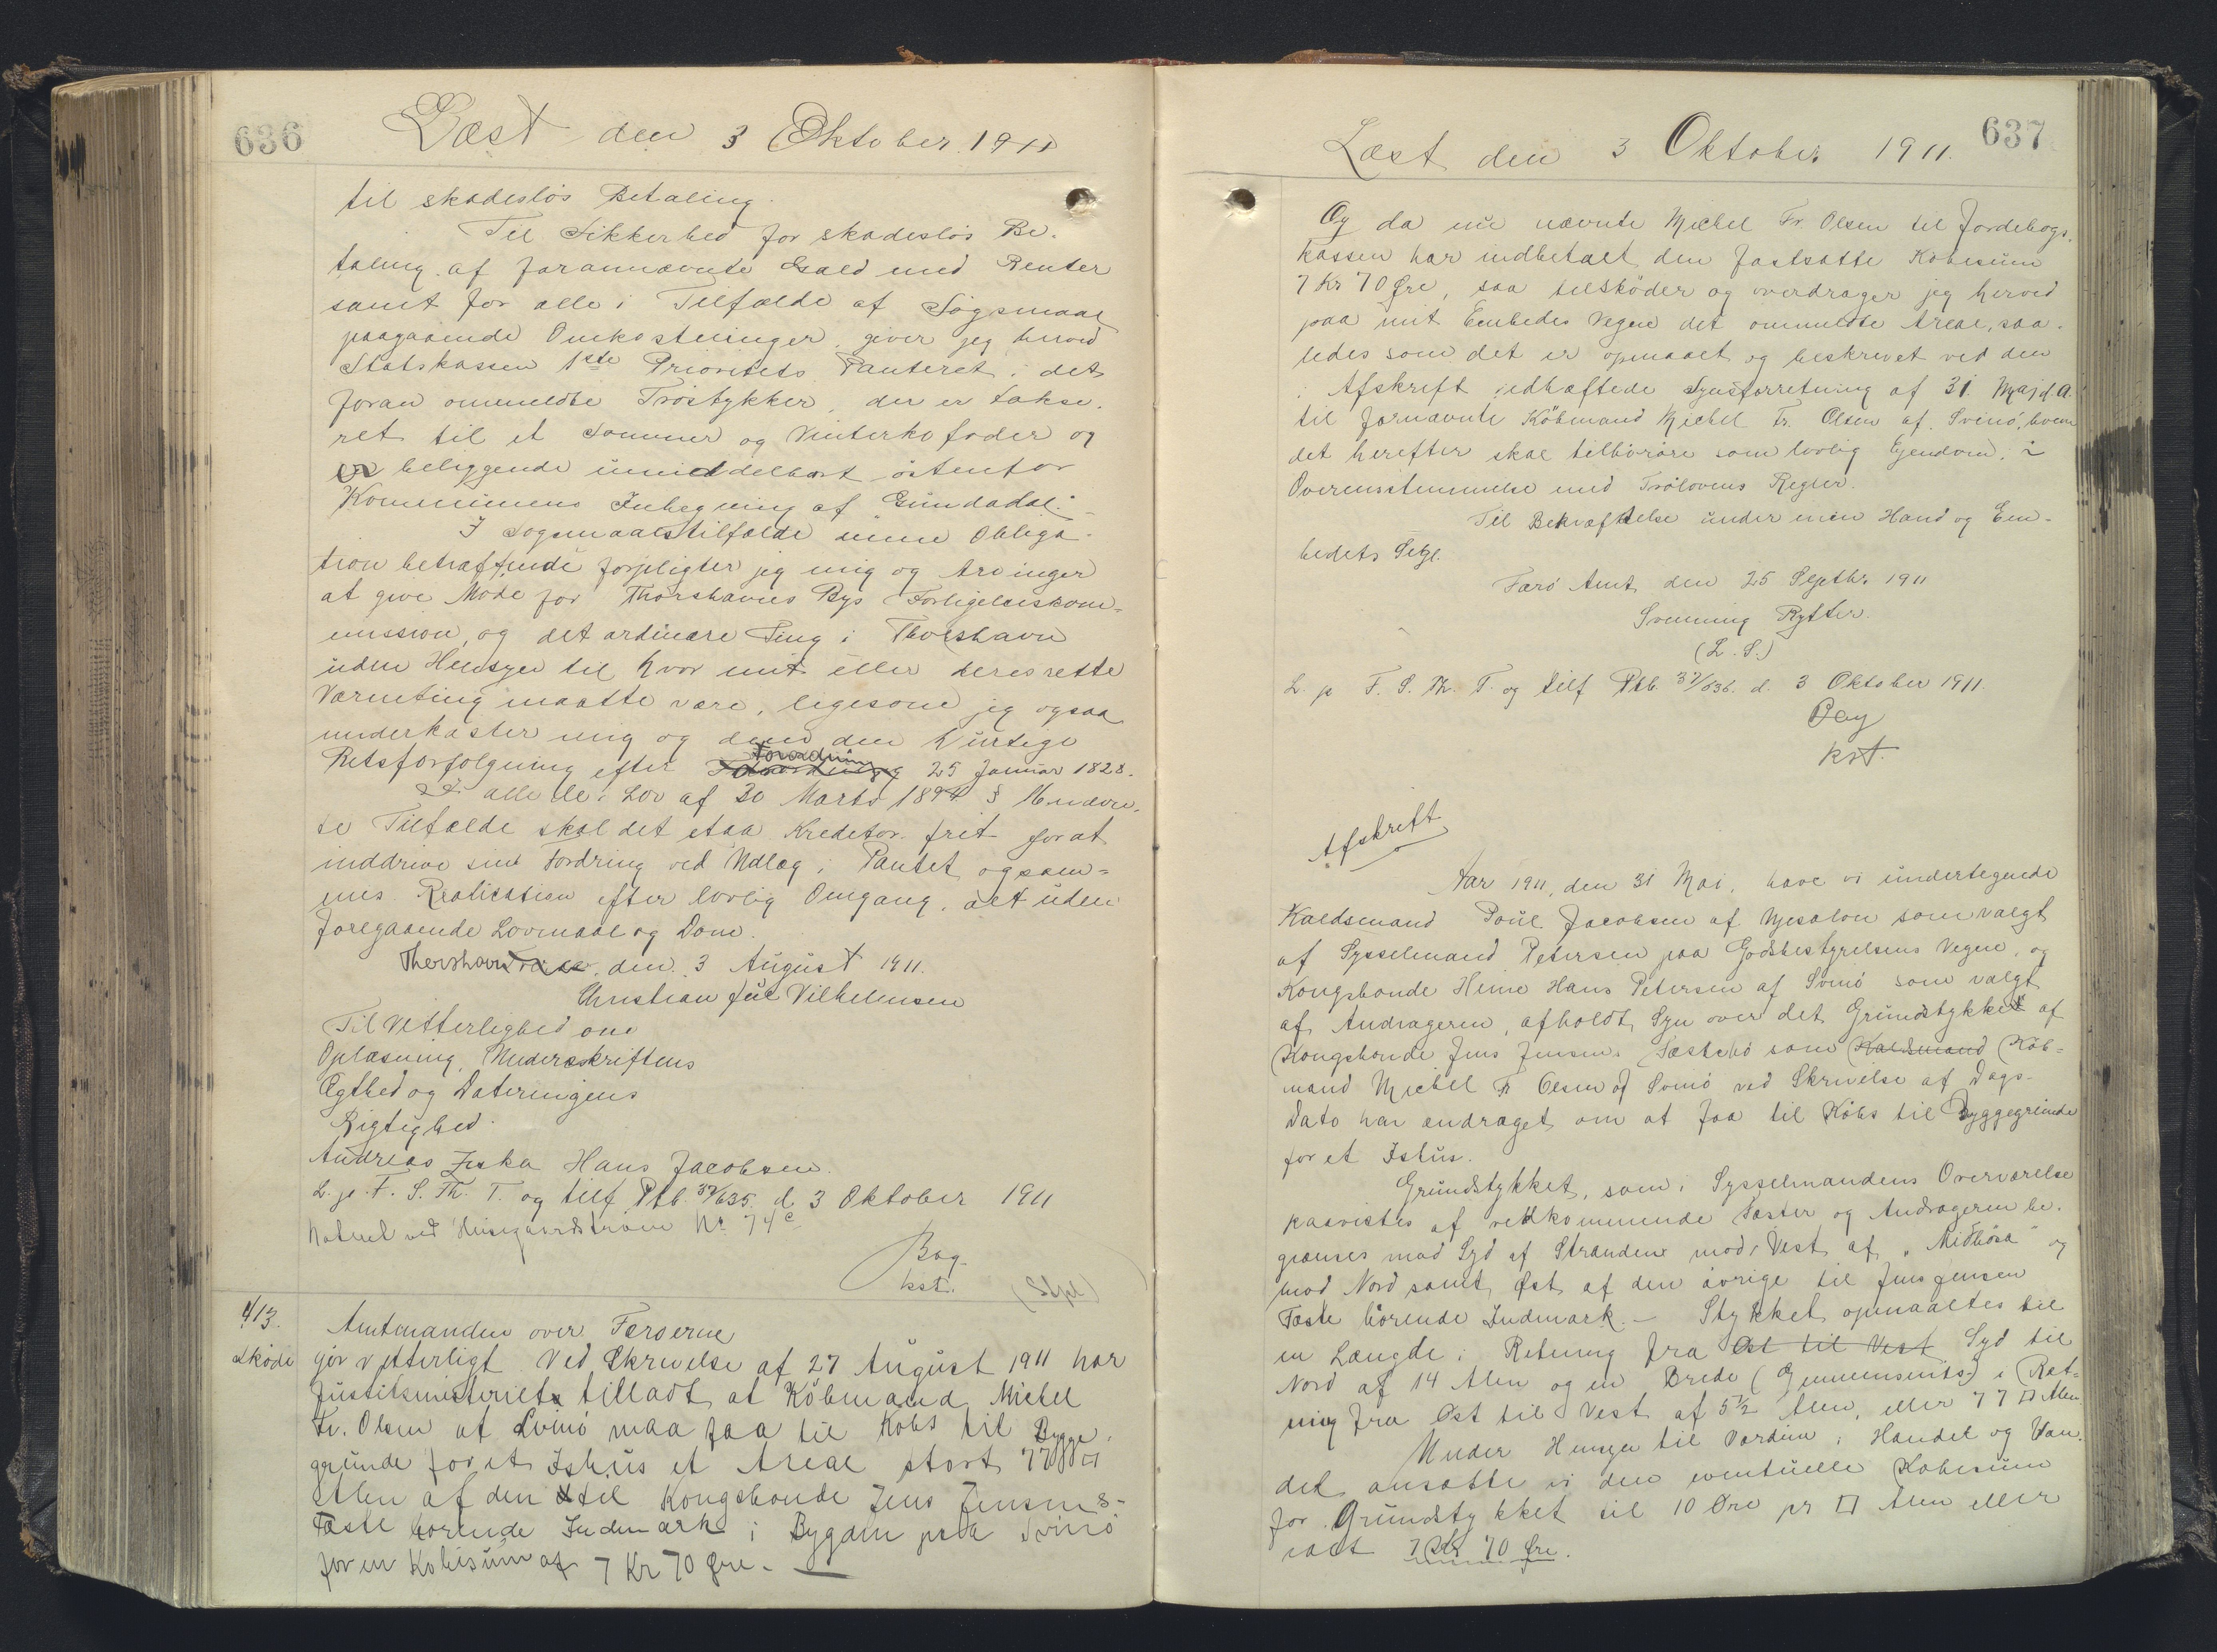 636
Læst den 3 Oktober 1911
til skadesløs Betaling.
Til Sikkerhed for skadesløs Be-
taling af forannævnte Gæld med Renter
samt for alle i Tilfælde af Søgsmaal
paagaaende Omkostninger, giver jeg herved
Statskassen 1ste Prioritets Panteret i det
foran ommeldte Tröstykker, der er takse-
ret til et Sommer og Vinterkofoder og
er beliggende umiddelbart østenfor
Kommunens Indhegning af Gundadal.
I Søgsmaalstilfælde minne Obliga-
tion betræffende forpligter jeg mig og Arvinger
at give Møde for Thorshavns Bys Forligelseskom-
mission, og det ordinære Ting i Thorshavn
uden Hensyn til hvor mit eller deres rette
Værneting maatte være, ligesom jeg ogsaa
underkaster mig og dem den hurtige
Retsforfølgning efter Forordning 25 Januar 1828.
I alle de i Lov af 30 Marts 1894 § 1 nævn-
te Tilfælde skal det staa Kreditor frit for at
inddrive sin Fordring ved Udlæg i Pantet og sam-
mes Realisation efter lovlig Omgang, alt uden
foregaaende Lovmaal og Dom.
Thorshavn, den 3 August 1911.
Christian Jul Vilhelmsen
Til Vitterlighed om
Oplæsning, Underskriftens
Ægthed og Dateringens
Rigtighed.
Andreas Ziska Hans Jacobsen.
L. p. F. S. Th. T. og tilf Ptb. 37/635 d. 3 Oktober 1911
Matrul ved Husegaardstrøm Nr 74e
Bay
kst.
413.
Skøde
Amtmanden over Færøerne
gør vitterligt Ved Skrivelse af 27 August 1911 har
Justitsministeriet tilladt at Købmand Michel
Fr. Olsen af Svinø maa faa til Købs til Bygge-
grunde for et Ishus et Areal stort 77 □
Alen af den til Kongsbonde Jens Jensens
Fæste hørende Indmark i Bygden paa Svinø
for en Købesum af 7 Kr 70 Øre.
637
Læst den 3 Oktober 1911.
Og da nu nævnte Michel Fr. Olsen til Jordebogs-
kassen har indbetalt den fastsatte Købesum
7 Kr 70 Øre, saa tilskøder og overdrager jeg herved
paa mit Embedes Vegne det ommeldte Areal, saa-
ledes som det er opmaalt og beskrevet ved den
i Afskrift vedhæftede Synsforretning af 31. Maj d. A.
til fornævnte Købmand Michel Fr. Olsen af Svinø, hvem
det herefter skal tilhøre som lovlig Ejendom, i
Overensstemmelse med Trölovens Regler.
Til Bekræftelse under min Haand og Em-
bedets Segl.
Færø Amt, den 25 Septbr 1911
Svenning Rytter.
(L. S.)
L. p F. S. Th. T. og tilf Ptb. 37/636. d. 3 Oktober 1911.
Bay
kst.
Afskrift
Aar 1911, den 31 Mai, have vi undertegnede
Kaldsmand Poul Jacobsen af som valgt
af Sysselmand Petersen paa Godsbestyrelsens Vegne, og
Kongsbonde Heine Hans Petersen af Svinø som valgt
af Andrageren, afholdt Syn over det Grundstykket af
Kongsbonde Jens Jensens Fæstebø som Kaldsmand Køb-
mand Michel Fr Olsen af Svinø ved Skrivelse af Dags-
Dato har andraget om at faa til Købs til Byggegrunde
for et Ishus.
Grundstykket, som i Sysselmandens Overværelse
paavistes af vedkommende Fæster og Andrageren be-
grænses mod Syd af Stranden mod Vest af „Miðbøsa" og
mod Nord samt Øst af den øvrige til Jens Jensen
Fæste hørende Indmark. — Stykket opmaaltes til
en Længde i Retning fra Øst til Vest Syd til
Nord af 14 Alen og en Brede (Gennemsnits-) i Ret-
ning fra Øst til Vest af 5½ Alen, eller 77 □ Alen.
Under Hensyn til Værdien i Handel og Van-
del ansatte vi den eventuelle Købesum
for Grundstykket til 10 Øre pr □ Alen eller
ialt 7 Kr 70 Øre.